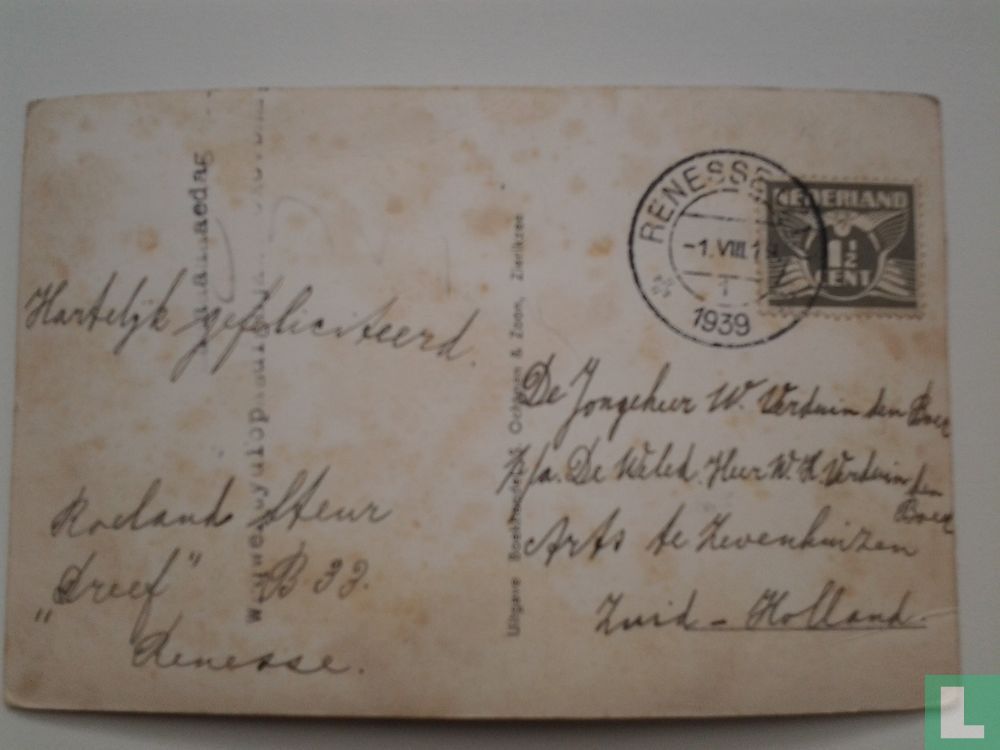 Hartelijk gefeliciteerd.
Roeland Steur
„Dreef” B 33.
Renesse.
Uitgave Boekhandel Ochtman & Zoon, Zierikzee
RENESSE
-1.VIII.1
1939
NEDERLAND
1½
CENT
De Jongeheer W. Verduin den Boer
p/a. De Weled. Heer W. H. Verduin den Boer
Arts te Zevenhuizen
Zuid-Holland.
L